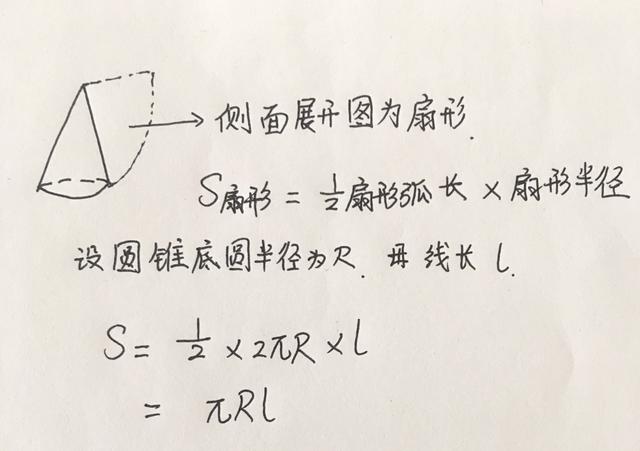 侧面展开图为扇形.
S扇形 = 1/2扇形弧长 × 扇形半径
设圆锥底圆半径为R. 母线长 l.
S = 1/2 × 2πR × l
= πRl